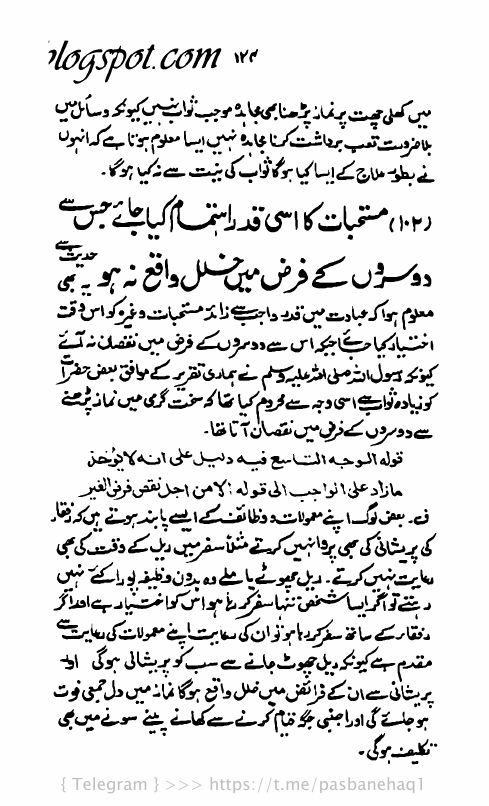 blogspot.com ۱۲۴
میں کھلی چھت پر نماز پڑھنا بھی مجاہدہ موجب ثواب نہیں کیونکہ وسائل میں
بلا ضرورت تعب برداشت کرنا مجاہدہ نہیں ایسا معلوم ہوتا ہے کہ انہوں
نے بطور علاج کے ایسا کیا ہوگا ثواب کی نیت سے نہ کیا ہوگا۔
(۱۰۲) مستحبات کا اسی قدر اہتمام کیا جائے جس سے
دوسروں کے فرض میں خلل واقع نہ ہو حدیث سے یہ بھی
معلوم ہوا کہ عبادت میں قدر واجب سے زائد مستحبات وغیرہ کو اس وقت
اختیار کیا جائے جبکہ اس سے دوسروں کے فرض میں نقصان نہ آئے
کیونکہ رسول اللہ صلی اللہ علیہ وسلم نے ہماری تقریر کے موافق بعض حضرات
کو زیادہ ثواب سے اسی وجہ سے محروم کیا تھا کہ سخت گرمی میں نماز پڑھنے
سے دوسروں کے فرض میں نقصان آتا تھا۔
قوله الوجه التاسع فيه دليل على انه لا يؤخذ
مازاد على الواجب الى قوله الا من اجل نقص فرض الغير
ف۔ بعض لوگ اپنے معمولات و وظائف کے ایسے پابند ہوتے ہیں کہ رفقاء
کی پریشانی کی بھی پروا نہیں کرتے مثلاً سفر میں ریل کے وقت کی بھی
رعایت نہیں کرتے۔ ریل چھوٹے یا ملے وہ بدون وظیفہ پورا کئے نہیں
رہتے تو اگر ایسا شخص تنہا سفر کر رہا ہو اس کو اختیار ہے اور اگر
رفقاء کے ساتھ سفر کر رہا ہو تو ان کی رعایت اپنے معمولات کی رعایت سے
مقدم ہے کیونکہ ریل چھوٹ جانے سے سب کو پریشانی ہوگی اور
پریشانی سے ان کے فرائض میں خلل واقع ہوگا نماز میں دل جمعی فوت
ہو جائے گی اور اجنبی جگہ قیام کرنے سے کھانے پینے سونے میں بھی
تکلیف ہوگی۔
{ Telegram } >>> https://t.me/pasbanehaq1